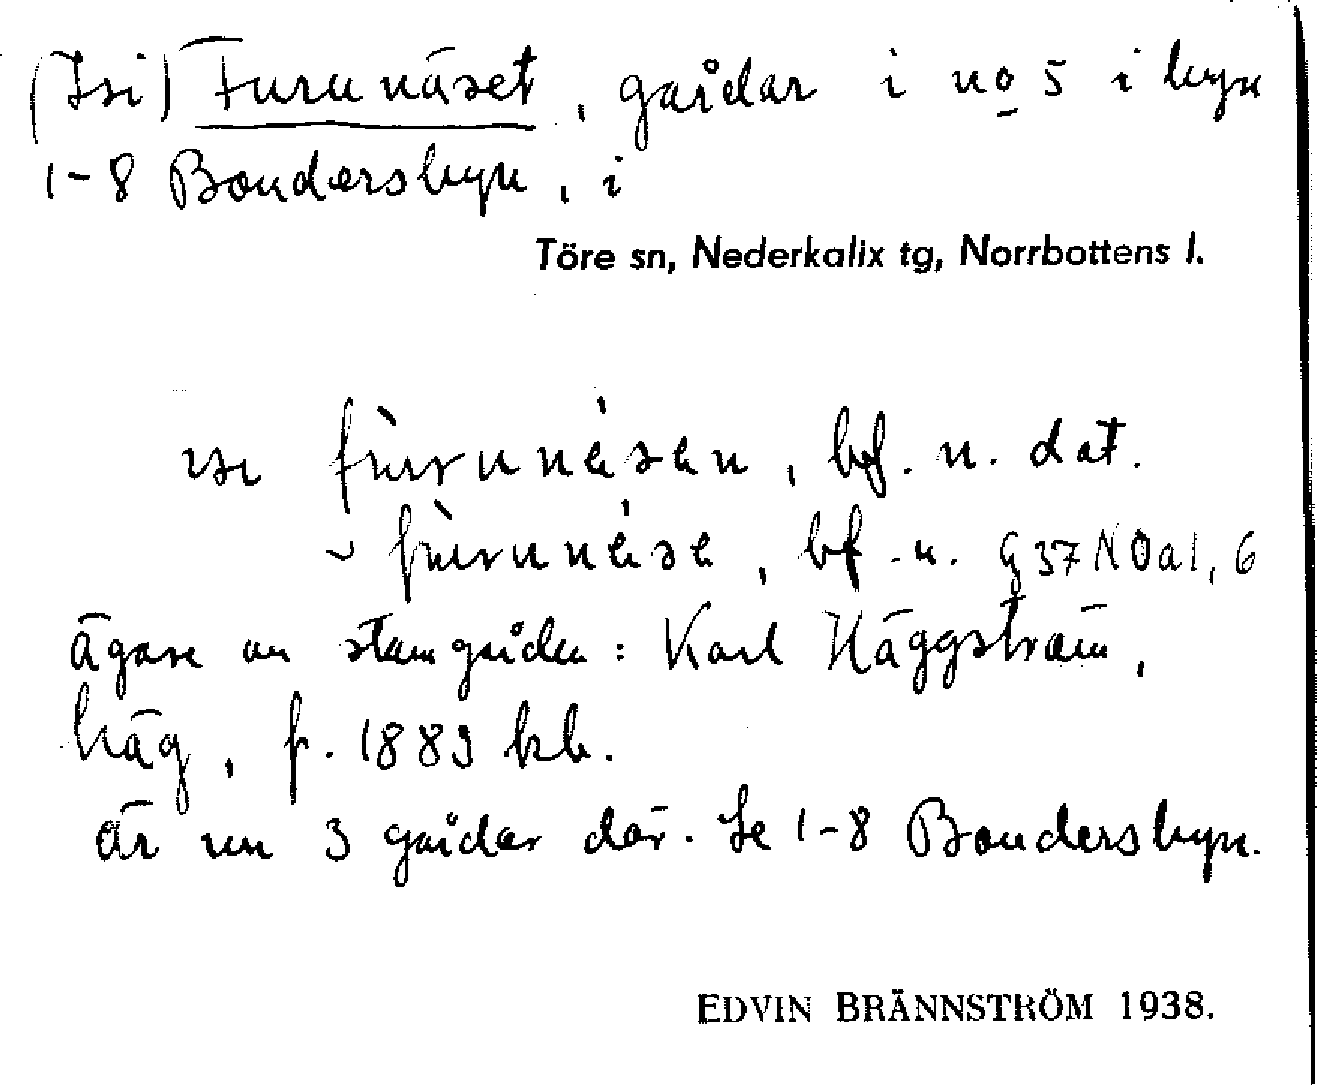 (Isi) Furunäset, gårdar i no 5 i byn
1-8 Bondersbyn, i
Töre sn, Nederkalix tg, Norrbottens l.
ise fùrunésen, bf. n. dat.
~ fùrunése, bf. n. G37NOa1, 6
ägare av stamgården: Karl Häggström,
häg, f. 1883 kb.
är nu 3 gårdar där. Se 1-8 Bondersbyn.
EDVIN BRÄNNSTRÖM 1938.